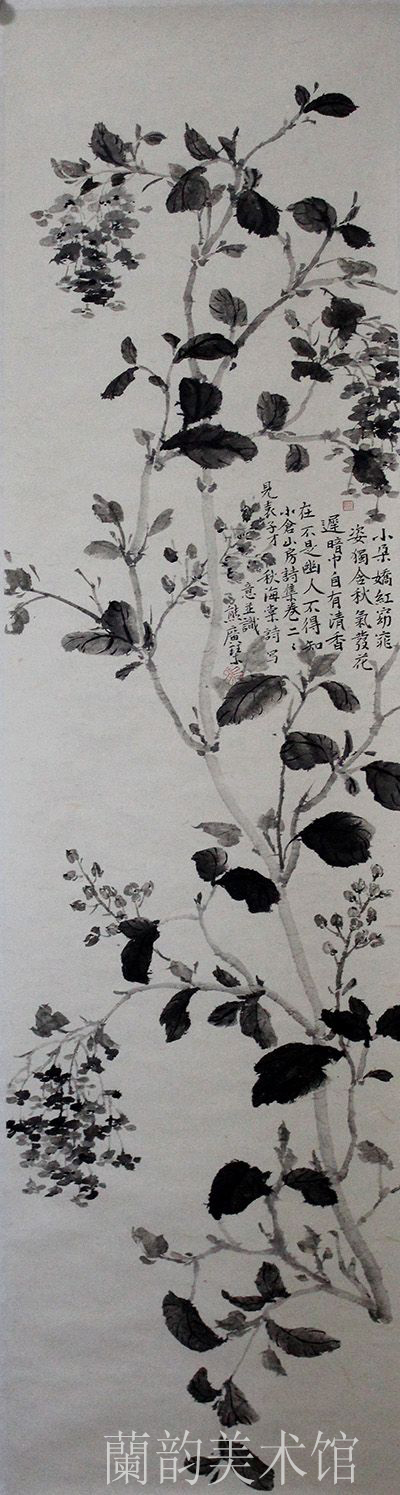 小朵嬌紅窈窕
姿獨含秋氣發花
遲暗中自有清香
在不是幽人不得知
小倉山房詩集卷二
見袁子才秋海棠詩寫
意並識
熊廣
蘭韵美术馆